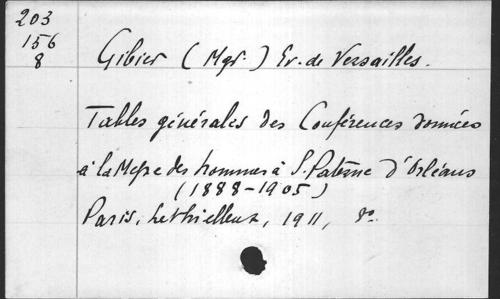 203
156
8
Gibier (Mgr.) Ev. de Versailles.
Tables générales des Conférences données
à la Messe des hommes à S. Paterne d'Orléans
(1888-1905)
Paris, Lethielleux, 1911, 8º.